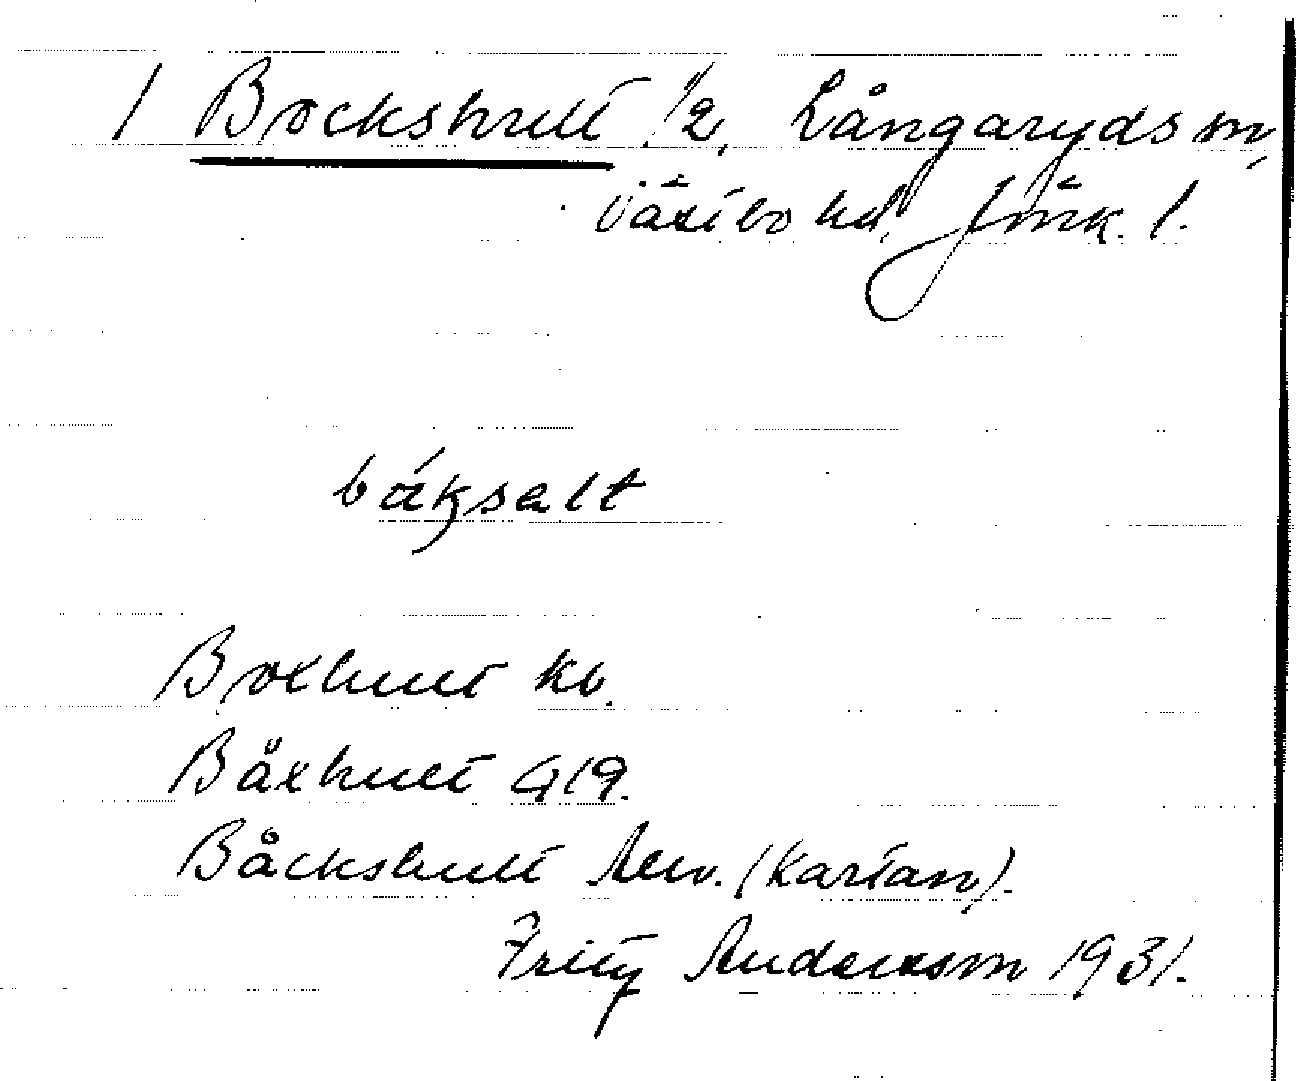 1 Bockshult 1/2, Långaryds sn,
Västbo hd, Jönk. l.
bákselt
Boxhult kb.
Båxhult G19.
Båckshult Arv. (Kartan).
Fritz Andersson 1931.